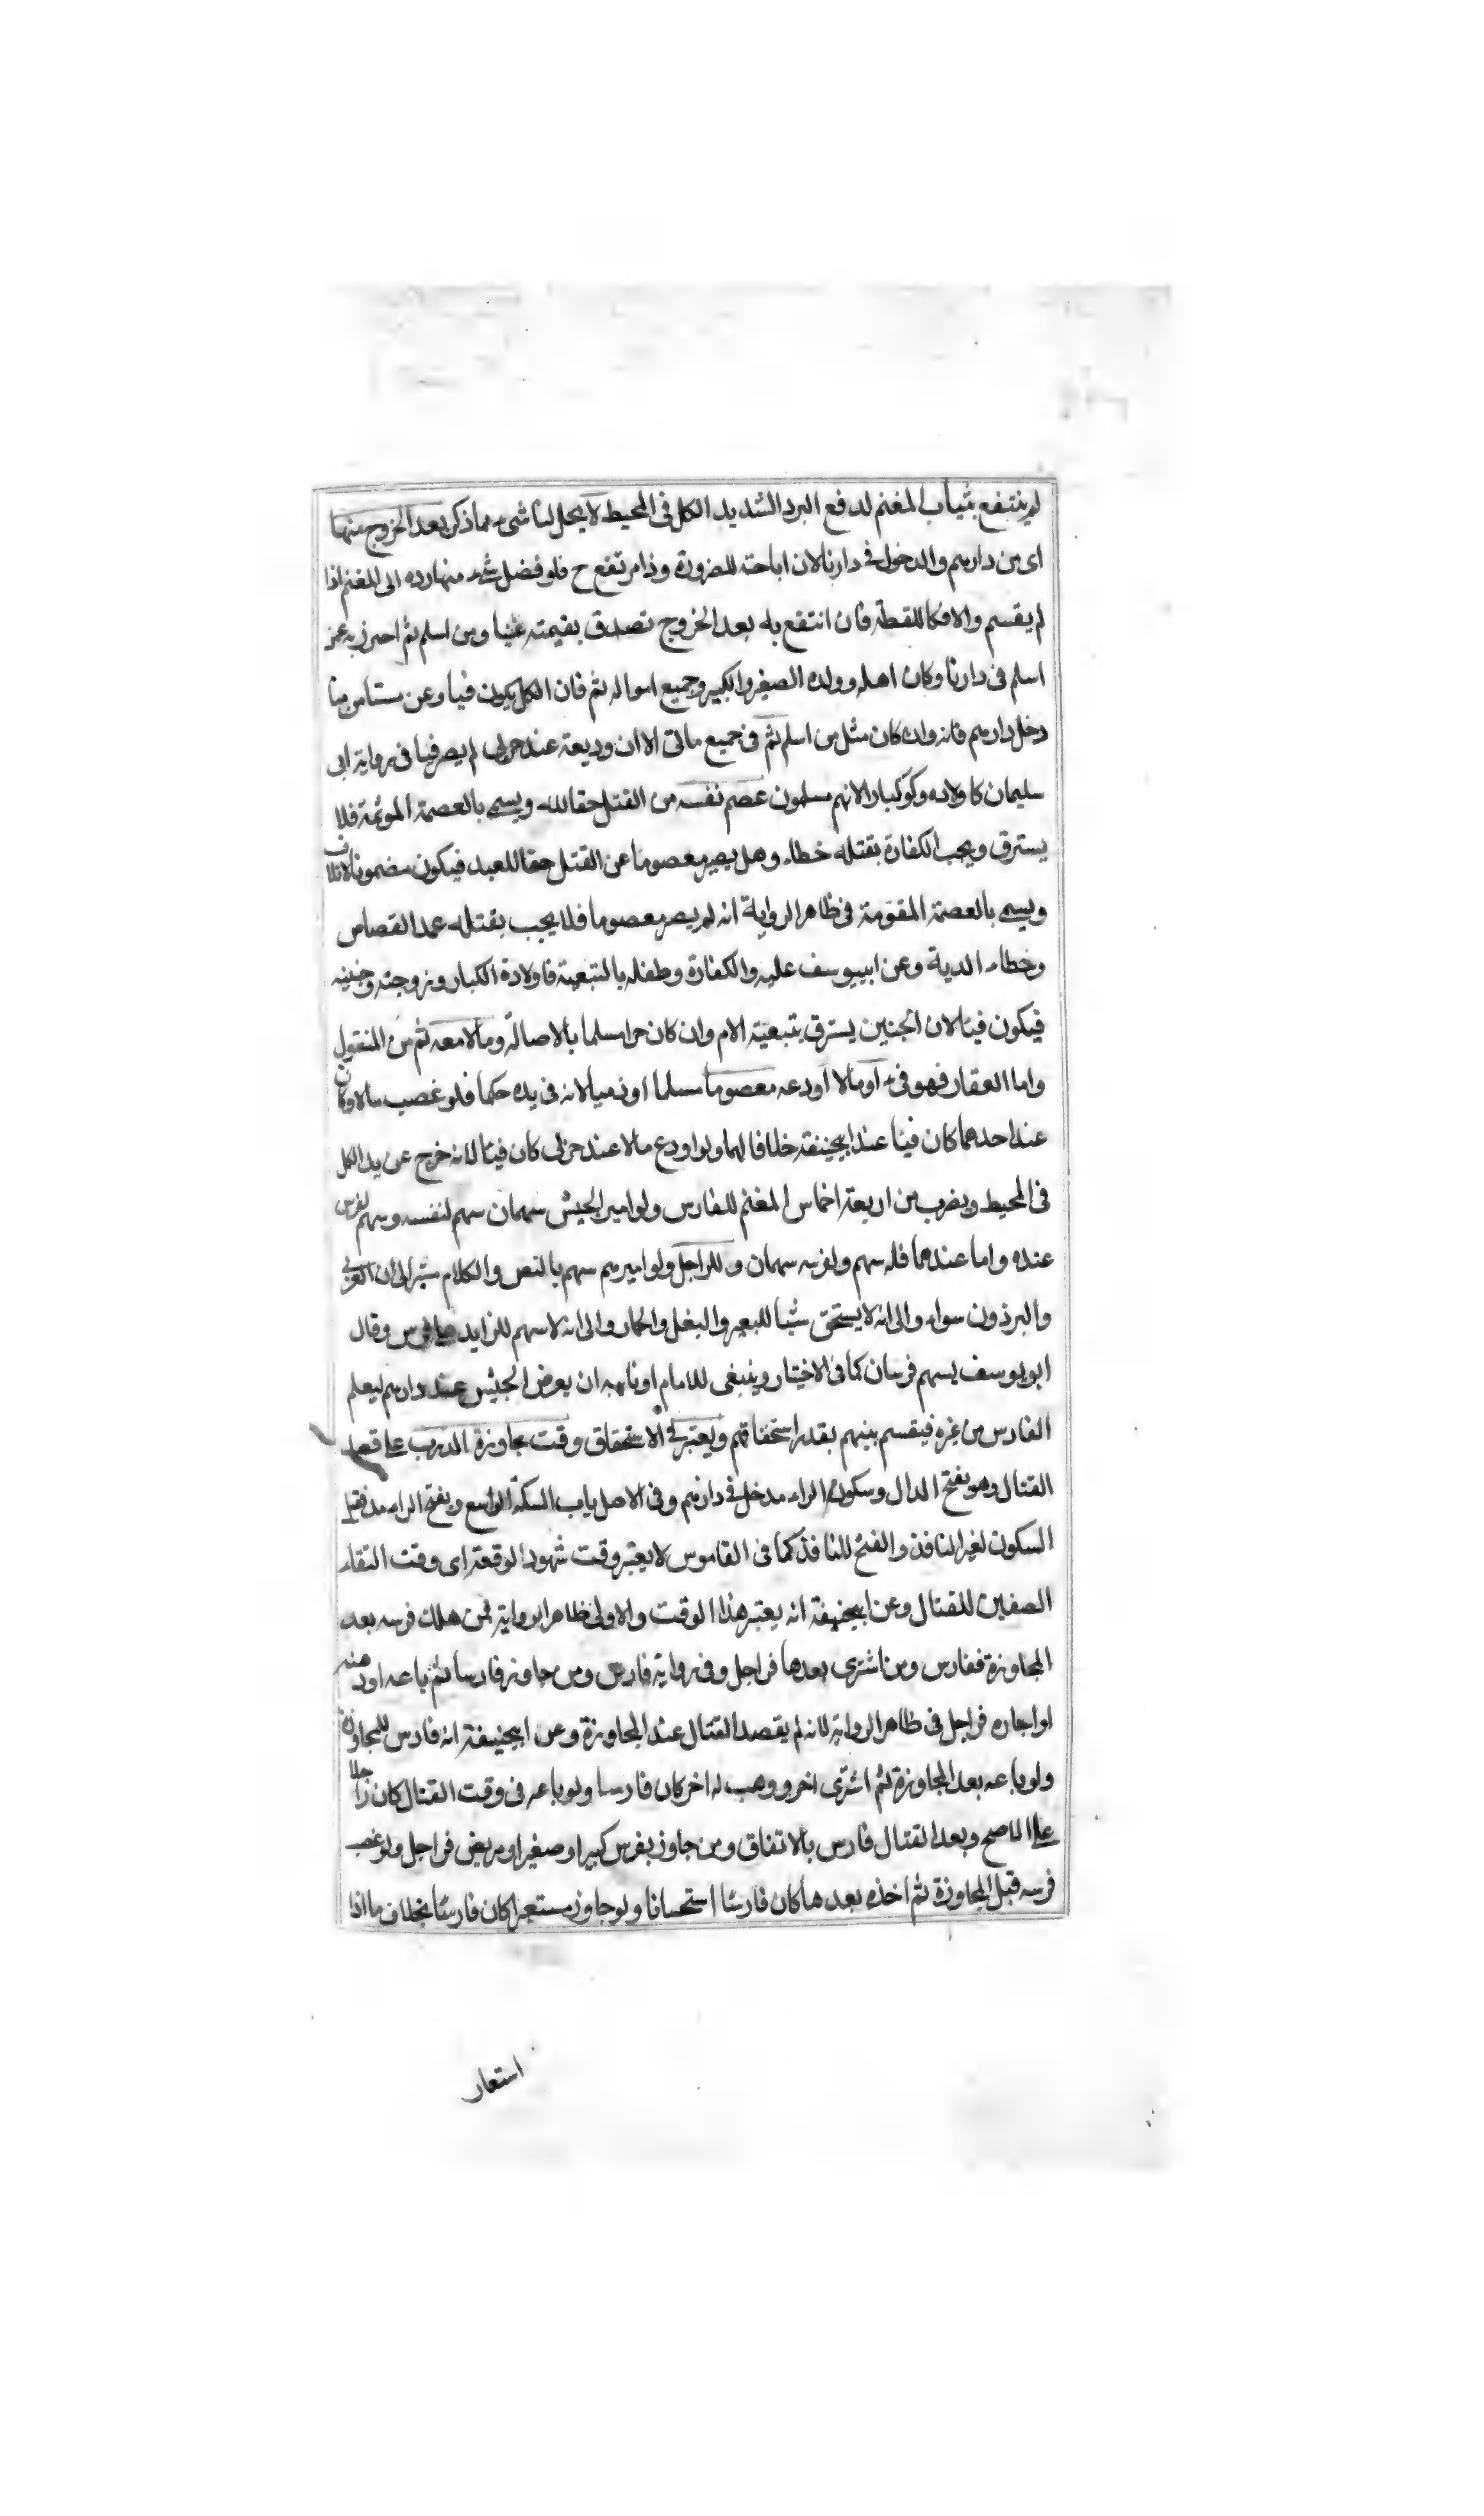 لم ينتفع بثياب المغنم لدفع البرد الشديد الكل فى المحيط لا يحل لنا شىء مما ذكر بعد الخروج منها
اى من دارهم والدخول فى دارنا لان اباحته للضرورة وذا مرتفع ح فلو فضل شىء منها رده الى المغنم اذا
لم يقسم والا فكاللقطة فان انتفع به بعد الخروج تصدق بقيمته غنيا ومن اسلم ثم احترز به عمن
اسلم فى دارنا وكان اهله وولده الصغير والكبير وجميع امواله ثم فان الكل يكون فيا وعن مستامن منا
دخل دارهم فانه وان كان مثل من اسلم ثم فى جميع ماتى الا ان وديعة عند حربى لم يصر فيا فى رواية ابى
سليمان كاولاده ولو كبارا لانهم مسلمون عصم نفسه من القتل حقا لله ويسمى بالعصمة الموثمة فلا
يسترق ويجب الكفارة بقتله خطاء وهل يصير معصوما عن القتل حقا للعبد فيكون مضمونا لاتلاف
ويسمى بالعصمة المقومة فى ظاهر الرواية انه لم يصر معصوما فلا يجب بقتله عمدا القصاص
وخطاء الدية وعن ابييوسف عليه والكفارة وطفله بالتبعية فاولاده الكبار وزوجته وجنينه
فيكون فيئا لان الجنين يسترق بتبعية الام وان كان حرا مسلما بالاصالة ومالا معه ثم من المنقول
واما العقار فهو فىء او مالا اودعه معصوما مسلما او ذميا لانه فى يده حكما فلو غصب مالا وكان
عند احدهما كان فيئا عند ابيحنيفة خلافا لهما ولو اودع مالا عند حربى كان فيئا لانه خرج عن يده الكل
فى المحيط ويضرب من اربعة اخماس المغنم للفارس ولو امير الجيش سهمان سهم لنفسه وسهم لفرس
عنده واما عندهما فله سهم ولفرسه سهمان وللراجل ولو اميرهم سهم بالنص والكلام يشير الى ان العربى
والبرذون سواء والى انه لا يستحق شيا للبعير والبغل والحمار والى انه لا سهم للزايد على فرس وقال
ابو يوسف يسهم فرسان كما فى الاختيار وينبغى للامام او نايبه ان يعرض الجيش عند دارهم ليعلم
الفارس من غيره فيقسم بينهم بقدر استحقاقهم ويعتبر فى الاستحقاق وقت مجاوزة الدرب على قصد
القتال وهو بفتح الدال وسكون الراء مدخل فى دارهم وفى الاصل باب السكة الواسع وبفتح الراء مد فقيل
السكون لغير النافذ والفتح للنافذ كما فى القاموس لا يعتبر وقت شهود الوقعة اى وقت التقاء
الصفين للقتال وعن ابيحنيفة انه يعتبر هذا الوقت والاولى ظاهر الرواية فمن هلك فرسه بعد
المجاوزة ففارس ومن اشترى بعدها فراجل وفى رواية فارس ومن جاوز فارسا ثم باعه او رهنه
او اجاره فراجل فى ظاهر الرواية لانه لم يقصد القتال عند المجاوزة وعن ابيحنيفة انه فارس للمجاوزة
ولو باعه بعد المجاوزة ثم اشترى اخر ووهب له اخر كان فارسا ولو باعه فى وقت القتال كان راجلا
على الاصح وبعد القتال فارس بالاتفاق ومن جاوز بفرس كبير او صغير او مريض فراجل ولو غصب
فرسه قبل المجاوزة ثم اخذه بعدها كان فارسًا استحسانا ولو جاوز مستعيرا كان فارسًا بخلاف ما اذا
استعار